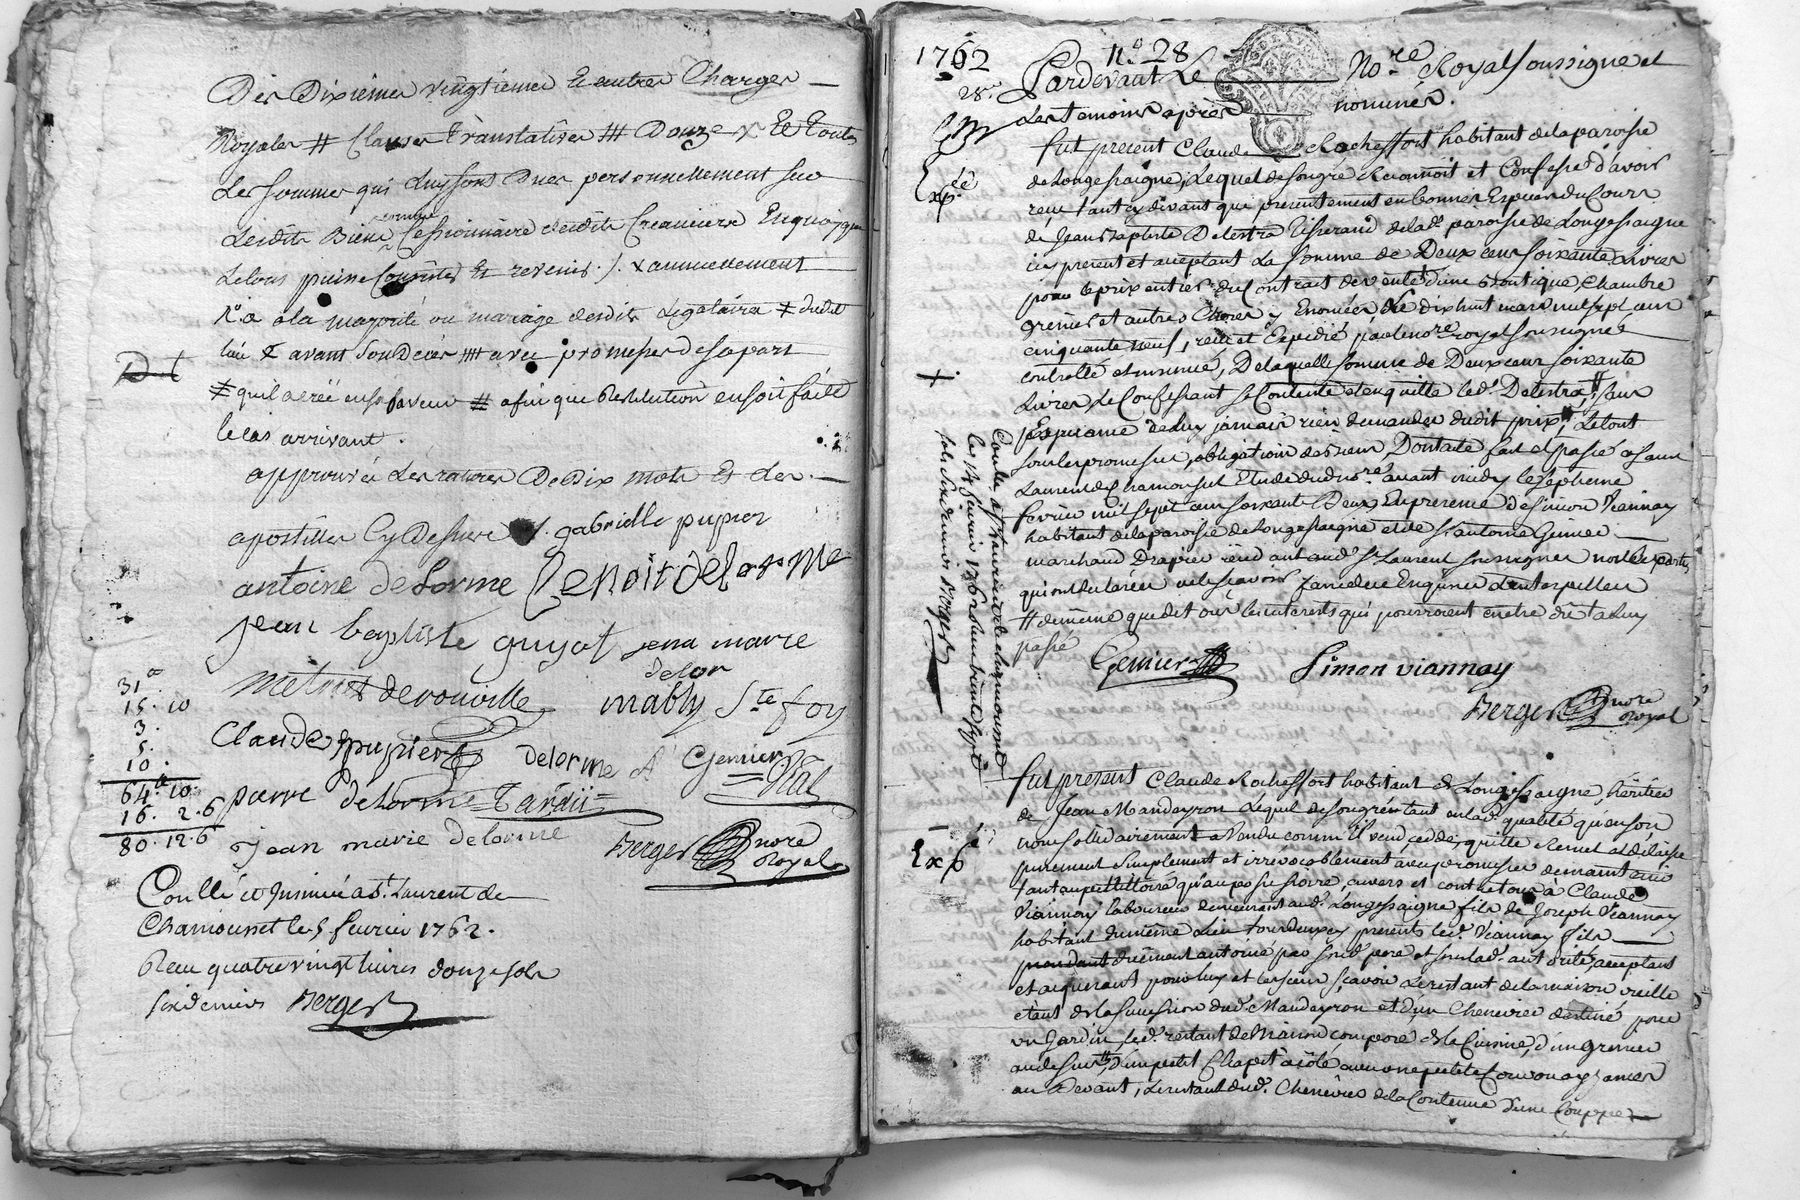 Des Dixiemes vingtiemes Et autres Charges
Royales # Clauses translatives ## Douze x Et toutes
Les sommes qui Luy sont Dues personnellement sur
Lesdits Biens comme Cessionnaire desdits Creanciers En quoy que
Le tous puisse Consister Et revenir ./. x annuellement
a la majorité ou mariage desdits Legataires ‡ dudit
lieu & avant son Deces #### avec promesses de sa part
‡ qu'il a créé en sa faveur # afin que Restitution en soit faitte
le cas arrivant.
approuvés Les ratures De Dix mots Et Les
apostilles Cy Dessus ./. gabrielle pupier
antoine delorme Benoit delorme
jean baptiste guyot jena marie
delor
metras derouville mably Ste foy
31
15. 10
3.
5.
10.
64. 10
16. 2. 6
80. 12. 6
Claude pupier delorme Genier Vial
pierre delorme Tardii
jean marie delorme
Berger nore Royal
Conllé et Insinué a St. Laurent de
Chamousset le 5 fevrier 1762.
Reçu quatre vingt livres douze sols
six deniers Berger
1762 n.º 28
28.e
Pardevant Le No.re Royal soussigné et
Les temoins apres nommés.
fut present Claude Rocheffort habitant de la paroisse
Exp.ée
de Longessaigne, Lequel de son gré Reconnoit et Confesse d'avoir
reçu tant cy devant que presentement en bonnes Especes du Cours
de Jean Baptiste Delestra tisserand de lad. paroisse de Longessaigne
icy present et acceptant La somme de Deux cens soixante Livres
pour le prix entier du Contrat de vente d'une Boutique, Chambre
greniers et autres Choses y Enoncées du dix huit mars mil sept cens
cinquante neuf, reçu et Expedié par le no.re royal soussigné
controllé et insinué, De laquelle somme de Deux cens soixante
Livres Le Confessant se Contente et en quitte led. Delestra, # sans
Esperance de luy jamais rien demander dudit prix, Le tout
sous les promesses, obligations des biens Dont acte fait et passé a Saint
Laurent de Chamousset Etude dudit no.re avant midy le septieme
fevrier mil sept cens soixante Deux En presence de Simon Viannay
habitant de la paroisse de Longessaigne et de Sr antoine Genier
marchand Drapier residant aud. St Laurent soussignés non les parties
qui ont declaré ne le scavoir faire de ce Enquises et interpellées
# de même que de tous les interets qui pourroient en être dus a luy
passé
Genier Simon viannay
Berger nore Royal
Conllé a St Laurent de Chamousset
le 14 fevrier 1762 reçu trente sept
sols six deniers Berger
fut present Claude Rocheffort habitant de Longessaigne, héritier
de Jean Mandeyron Lequel de son gré tant en lad. qualité qu'en son
nom sollidairement a Vendu comme Il vend, cedde, quitte Remet et delaisse
Exp.ée
purement simplement et irrévocablement avec promesse de maintenir
tant au petittoire qu'au possessoire, envers et contre tous à Claude
Viannay laboureur demeurant aud. Longessaigne fils de Joseph Viannay
habitant du même Lieu tous deux cy presents led. Viannay fils
procedant duement autorisé par sond. pere et sous lad. autorité, acceptant
et acquerant pour luy et les siens sçavoir Le restant de la maison vieille
etant de la succession dud. Mandeyron et d'un Chenevier destiné pour
un Jardin, led. restant de Maison composé de la Cuisine, d'un grenier
au dessus, d'un petit Chapit à côté avec une petite Cour ou aysances
au Devant, Le restant dud. Chenevier de la Contenue d'une Couppée